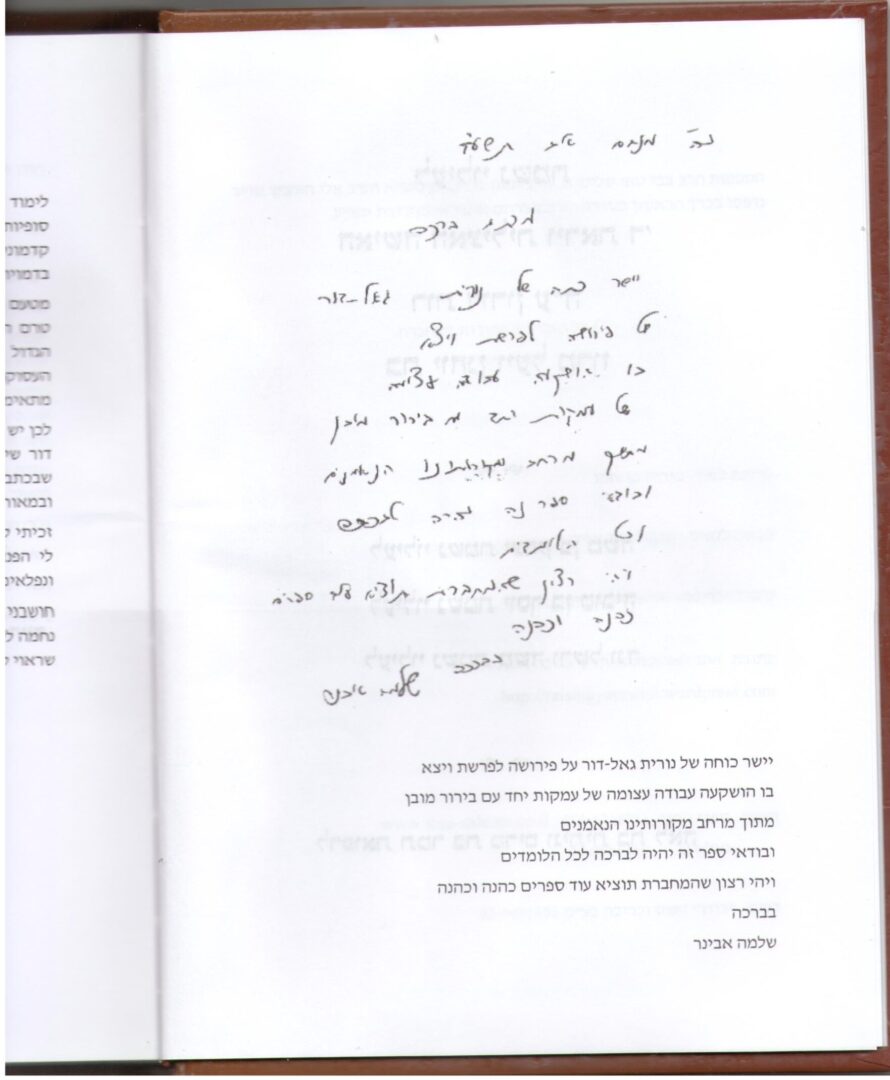 מנחם אב תשע"ד
מכתב ברכה
יישר כחה של נורית גאל-דור
על פירושה לפרשת ויצא
בו הושקעה עבודה עצומה
של עמקות יחד עם בירור מובן
מתוך מרחב מקורותינו הנאמנים
ובודאי ספר זה יהיה לברכה
לכל הלומדים
ויהי רצון שהמחברת תוציא עוד ספרים
כהנה וכהנה
בברכה שלמה אבינר
יישר כוחה של נורית גאל-דור על פירושה לפרשת ויצא
בו הושקעה עבודה עצומה של עמקות יחד עם בירור מובן
מתוך מרחב מקורותינו הנאמנים
ובודאי ספר זה יהיה לברכה לכל הלומדים
ויהי רצון שהמחברת תוציא עוד ספרים כהנה וכהנה
בברכה
שלמה אבינר
לימוד
סופיות
קדמוני
מטעם
טרם
הגדול
העסוק
מתאימ
לכן יש
דור שי
שבכתב
ובמאור
זכיתי
לי הפנ
חושבני
נחמה ל
שראוי